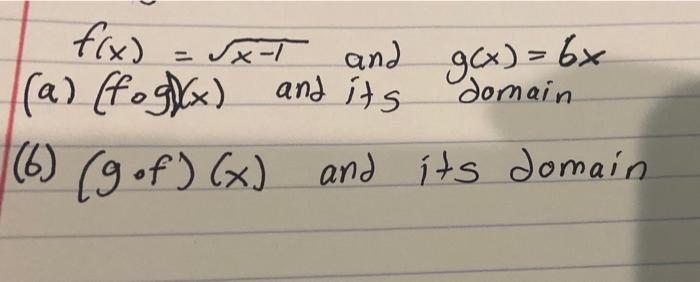 f(x) = √x-1 and g(x) = 6x
(a) (fog)(x) and its domain
(b) (g∘f) (x) and its domain